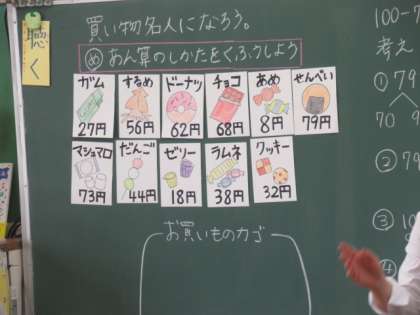 聴く
買い物名人になろう。
め あん算のしかたをくふうしよう
ガム するめ ドーナッツ チョコ あめ せんべい
27円 56円 62円 68円 8円 79円
マシュマロ だんご ゼリー ラムネ クッキー
73円 44円 18円 38円 32円
お買いものカゴ
100-7
考え
① 79
70 9
②
③ 10
④